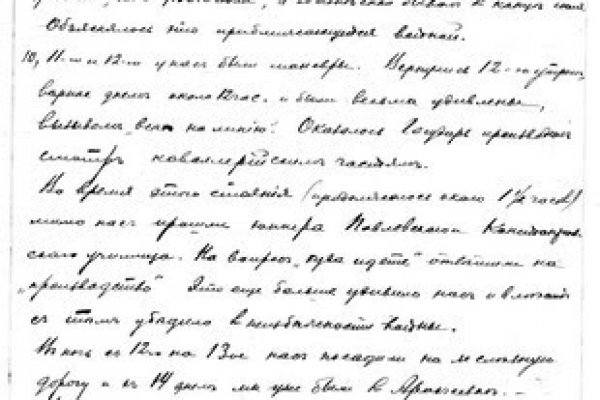 Объяснялось это приближающейся войной.
10, 11-го и 12-го у нас были маневры. Вернулись 12-го утром,
вернее днем около 12 час. и были весьма удивлены,
вызовом "всех на линию". Оказалось Государь производил
смотр кавалерийским частям.
Во время этого стояния (продолжалось около 1½ часов)
мимо нас прошли юнкера Павловского
училища. На вопрос "куда идете" ответили на
"производство" Это еще больше удивило нас и
с тем убедило в неизбежности войны.
В ночь с 12-го на 13-ое нас посадили на железную
дорогу и 14 днем мы уже были в